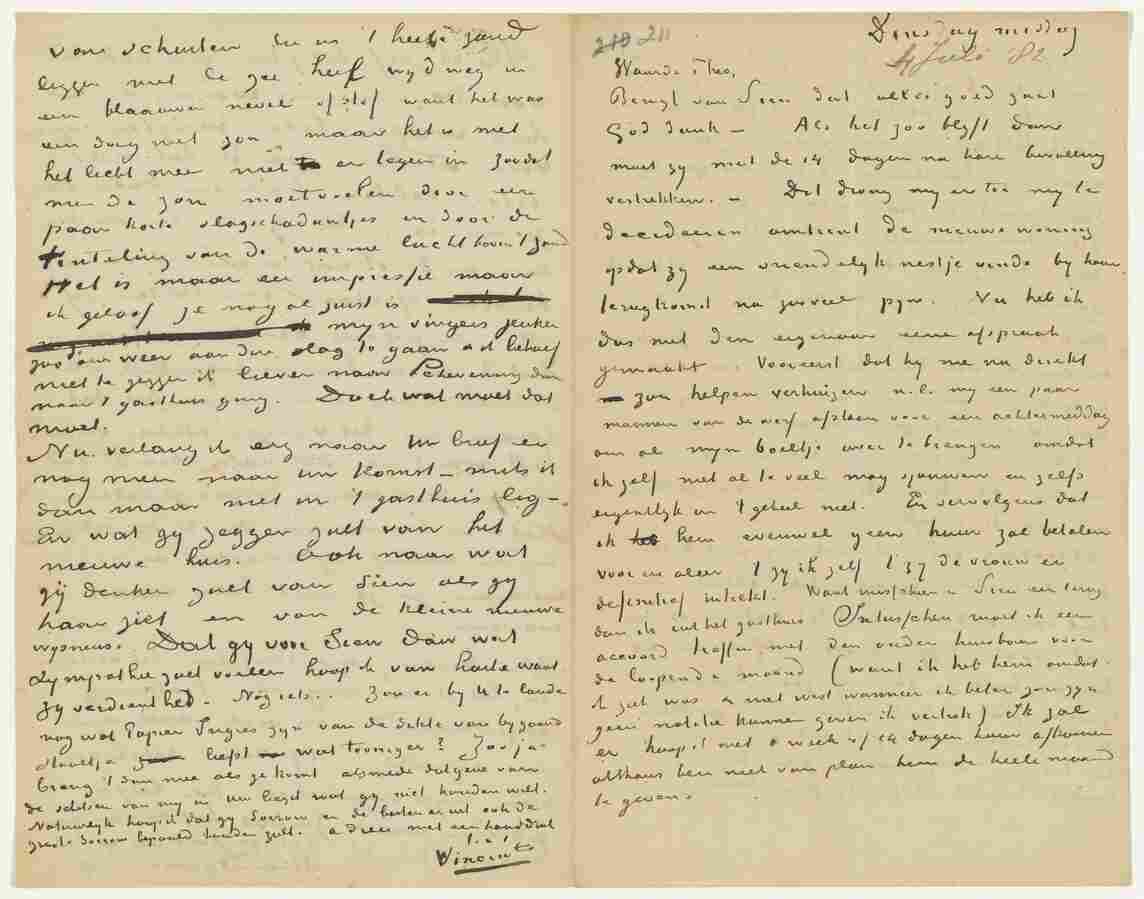 van schuiten die in 't heete zand
liggen met de zee heel wyd weg in
een blaauwen nevel of stof want het was
een dag met zon maar het is met
het licht mee niet er tegen in zoodat
men de zon moet voelen door een
paar korte slagschaduwtjes en door de
tinteling van de warme lucht boven 't zand
Het is maar een impressie maar
ik geloof ze nog al juist is
myn vingers jeuken
zoo om weer aan den slag te gaan & ik behoef
niet te zeggen ik liever naar Scheveningen dan
naar 't gasthuis ging. Doch wat moet dat
moet.
Nu verlang ik erg naar Uw brief en
nog meer naar uw komst – mits ik
dan maar niet in 't gasthuis lig –
En wat gy zeggen zult van het
nieuwe huis. Ook naar wat
gij denken zult van Sien als gy
haar ziet en van de kleine nieuwe
wysneus. Dat gy voor Sien dan wat
sympathie zult voelen hoop ik van harte want
zy verdient het. Nog iets.. Zou er by U te lande
nog wat Papier Ingres zyn van de dikte van bygaand
staaltje liefst wat tooniger? Zoo ja
breng 't dan mee als ge komt alsmede datgene van
de schetsen van my in Uw bezit wat gy niet houden wilt.
Natuurlyk hoop ik dat gy Sorrow en de besten en ook de
groote Sorrow bepaald houden zult. adieu met een handdruk
t.à t.
Vincent
210 211
Dinsdag middag
4 Juli '82
Waarde Theo,
Berigt van Sien dat alles goed gaat
God dank – Als het zoo blyft dan
moet zy met de 14 dagen na hare bevalling
vertrekken. – Dat drong my er toe my te
decideeren omtrent de nieuwe woning
opdat zy een vriendelyk nestje vinde by haar
terugkomst na zooveel pyn. Nu heb ik
dus met den eigenaar eene afspraak
gemaakt. Vooreerst dat hy me nu direkt
zou helpen verhuizen n.l. my een paar
mannen van de werf afstaan voor een achtermiddag
om al myn boeltje over te brengen omdat
ik zelf niet al te veel mag sjouwen en zelfs
eigentlyk in 't geheel niet. En vervolgens dat
ik hem evenwel geen huur zal betalen
voor en aleer 't zy ik zelf 't zy de vrouw er
definitief intrekt. Want misschien is Sien eer terug
dan ik uit het gasthuis Intusschen moet ik een
accoord treffen met den ouden huisbaas voor
de loopende maand (want ik heb hem omdat
ik ziek was & niet wist wanneer ik beter zou zyn
geen notitie kunnen geven ik vertrok) Ik zal
er hoop ik met 1 week of 14 dagen huur afkomen
althans ben niet van plan hem de heele maand
te geven.